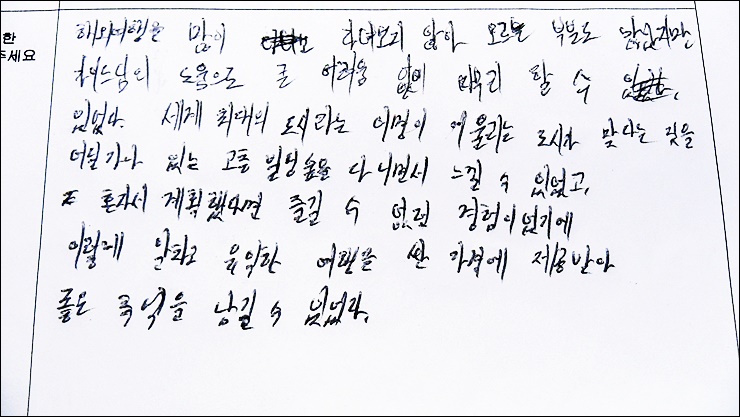 한
주세요
해외여행을 많이 다녀보지 않아 모르는 부분도 많았지만
하나투어의 도움으로 큰 어려움 없이 마무리 할 수
있었다. 세계 최대의 도시라는 이명이 어울리는 도시가 맞다는 것을
어딜가나 있는 고층 빌딩 숲을 다니면서 느낄 수 있었고,
혼자서 계획했다면 즐길 수 없던 경험이었기에
이렇게 알차고 유익한 여행을 싼 가격에 제공받아
좋은 추억을 남길 수 있었다.